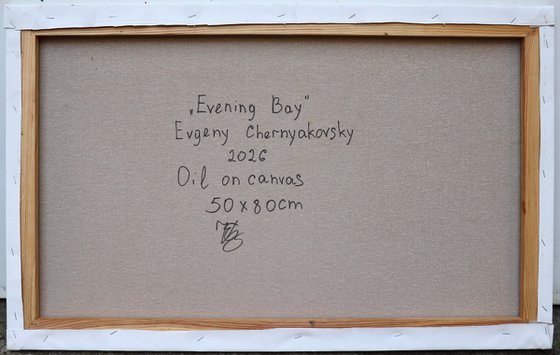 „Evening Bay"
Evgeny Chernyakovsky
2026
Oil on canvas
50 x 80cm